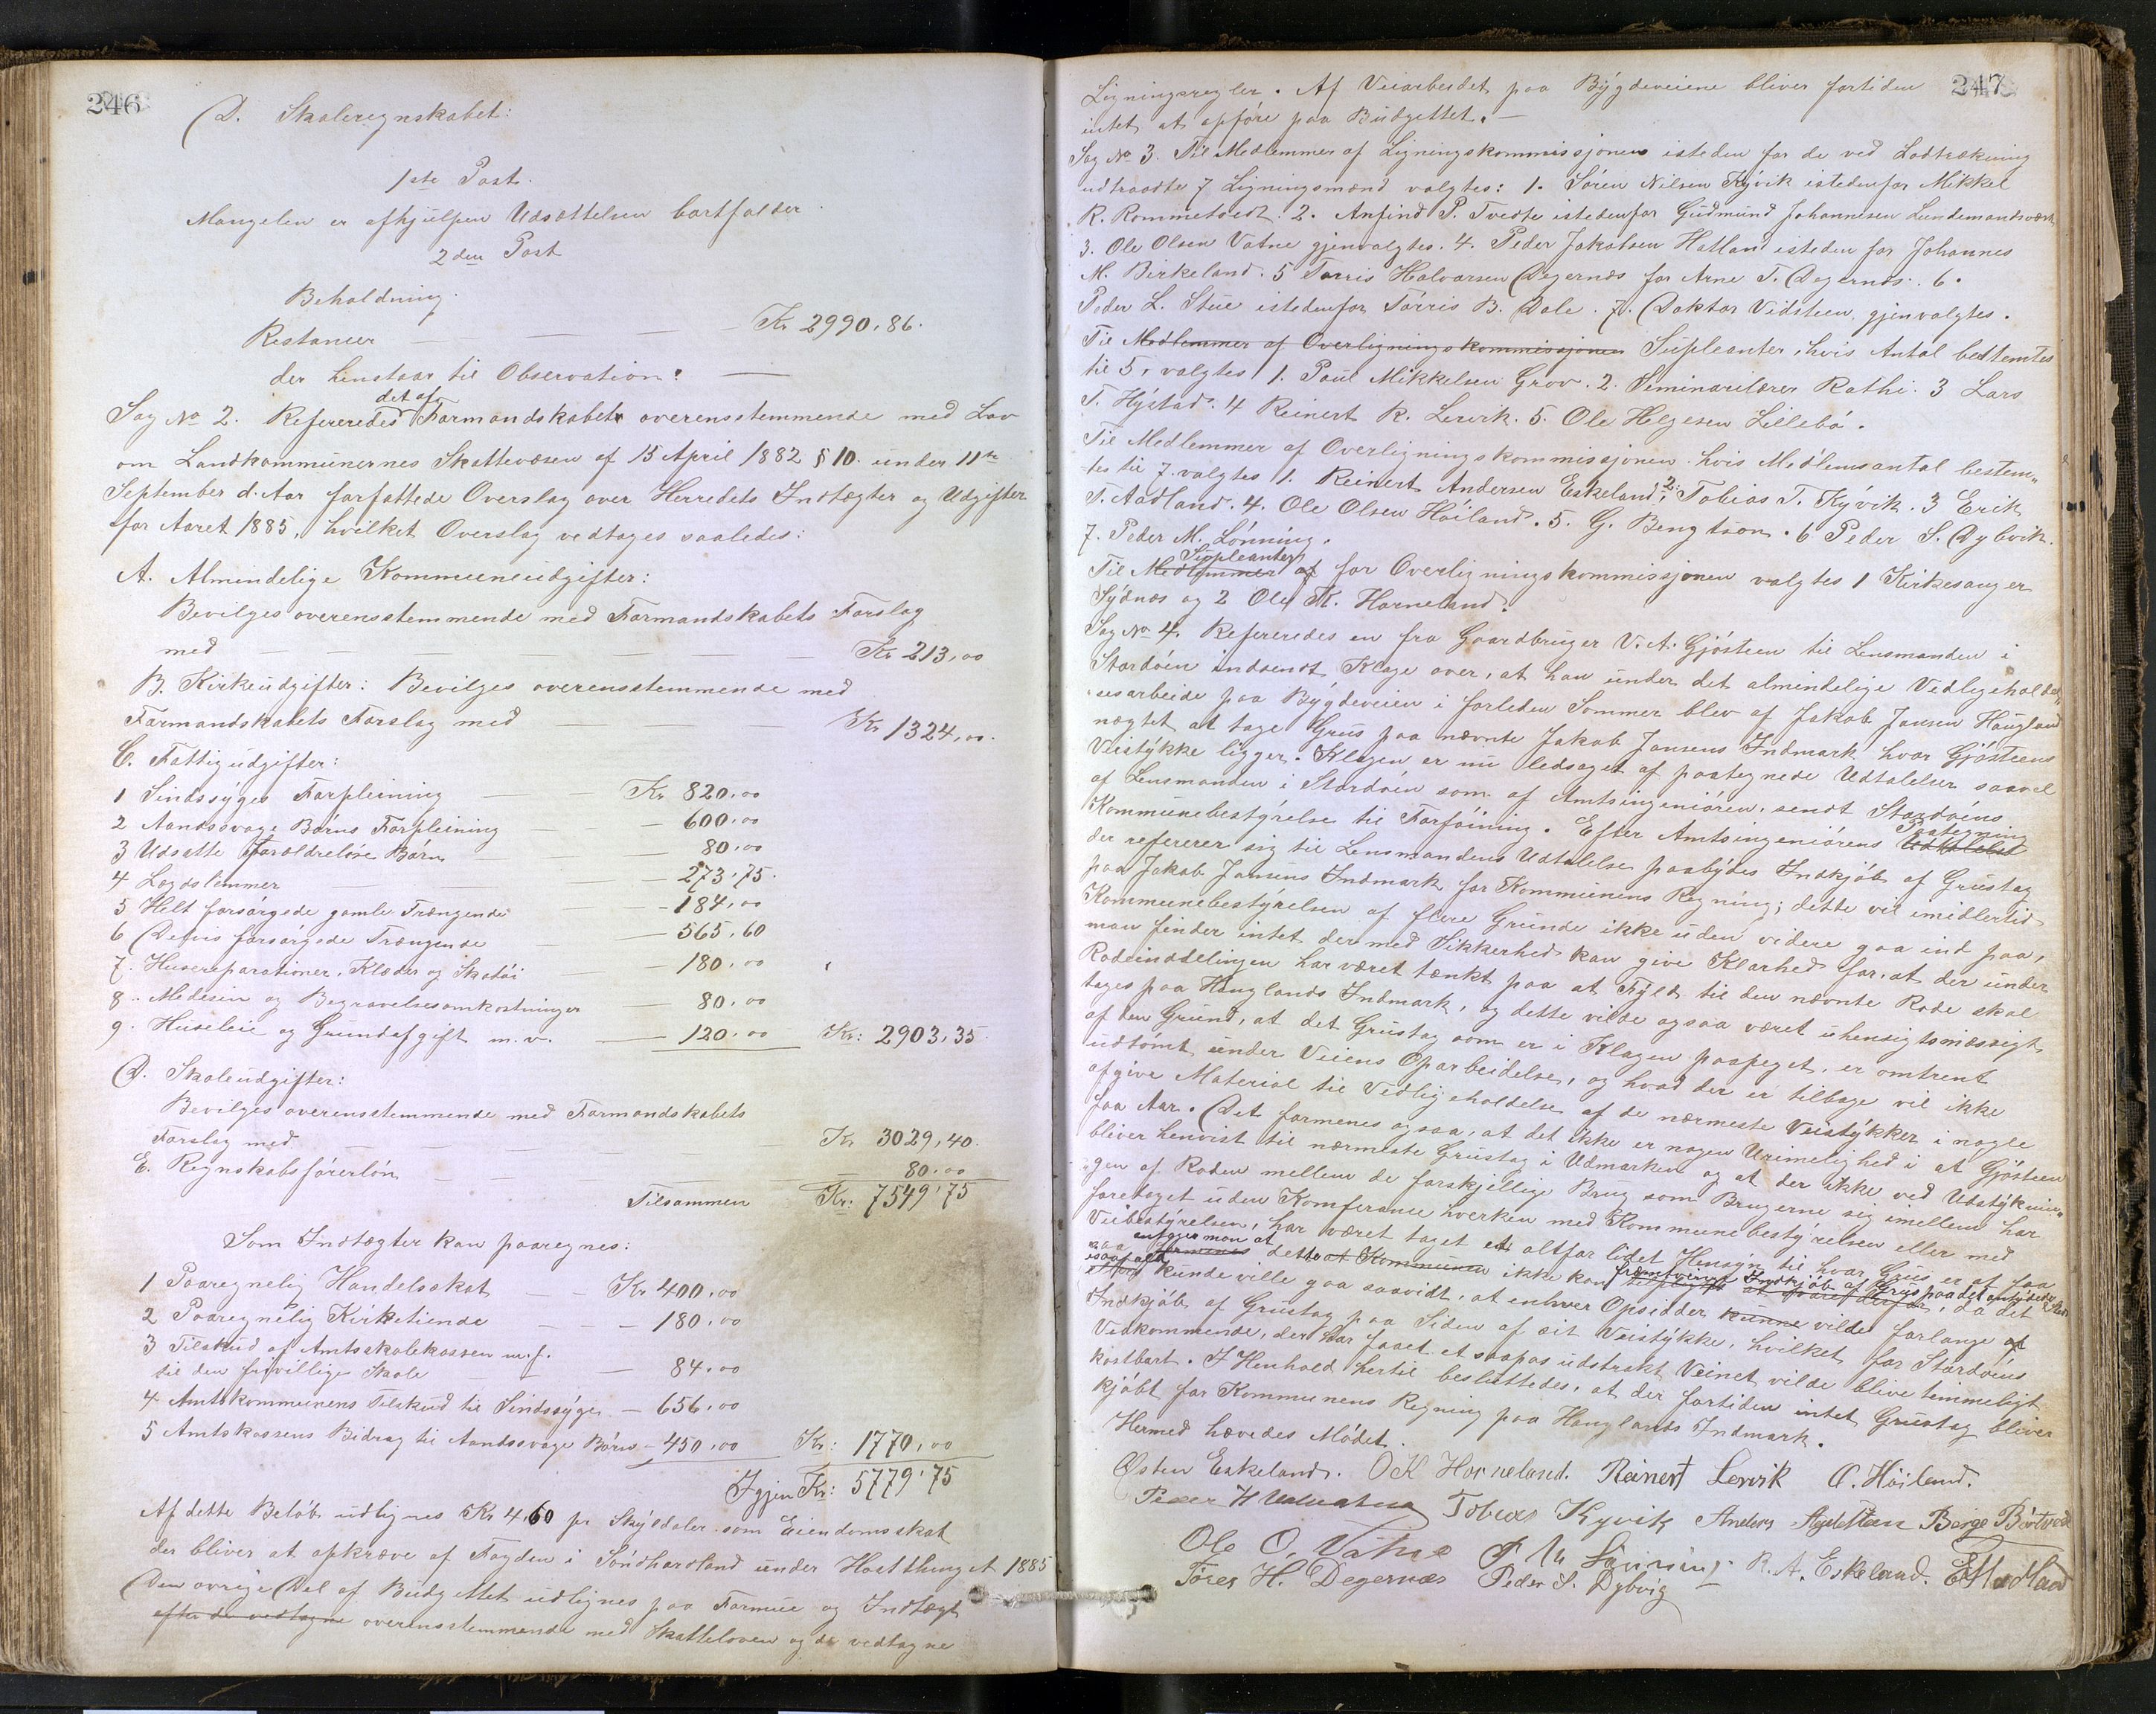 246
D. Skoleregnskabet:
1ste Post.
Mangelen er afhjulpen Udsættelsen bortfalder.
2den Post
Beholdning.
Restancer — — — Kr 2990,86.
der henstaar til Observation: —
det af
Sag No 2. Refereredes Formandskabet overensstemmende med Lov
om Landkommunernes Skattevæsen af 15 April 1882 § 10. under 11te
September d. Aar forfattede Overslag over Herredets Indtægter og Udgifter
for Aaret 1885, hvilket Overslag vedtages saaledes:
A. Almindelige Kommuneudgifter:
Bevilges overensstemmende med Formandskabets Forslag
med — — — — — Kr 213,00
B. Kirkeudgifter: Bevilges overensstemmende med
Formandskabets Forslag med — — Kr 1324,00.
C. Fattigudgifter:
1 Sindssýges Forpleining — — Kr 820,00
2 Aandssvage Børns Forpleining — — 600,00
3 Udsatte Forældreløse Børn — — 80,00
4 Lægdslemmer — — — 273,75.
5 Helt forsørgede gamle Trængende — — 184,00
6 Delvis forsørgede Trængende — — 565,60
7. Husereparationer, Klæder og Skotøi — — 180,00
8. Medisin og Begravelsesomkostninger — 80,00
9. Huseleie og Grundafgift m.v. — 120,00 Kr: 2903,35
D. Skoleudgifter:
Bevilges overensstemmende med Formandskabets
Forslag med — — — — Kr 3029,40.
E. Regnskabsførerløn — — 80,00
Tilsammen Kr: 7549,75
Som Indtægter kan paaregnes:
1 Paaregnelig Handelsskat — — Kr 400,00
2 Paaregnelig Kirketiende — — — 180,00
3 Tilskud af Amtsskolekassen m.f.
til den frivillige Skole — — — 84,00
4 Amtskommunens Tilskud til Sindssýge — 656,00
5 Amtskassens Bidrag til Aandssvage Børn — 450,00 Kr: 1770,00
Igjen Kr: 5779,75
Af dette Beløb udlignes Kr 4,60 pr Skýlddaler som Eiendomsskat
der bliver at opkræve af Fogden i Søndhordland under Høstthinget 1885
Den øvrige Del af Budgettet udlignes paa Formue og Indtægt
efter de vedtagne overensstemmende med Skatteloven og de vedtagne
247
Ligningsregler. Af Veiarbeidet paa Býgdeveiene bliver fortiden
intet at opføre paa Budgettet. —
Sag No 3. Til Medlemmer af Ligningskommissjonen isteden for de ved Lodtrækning
udtraadte 7 Ligningsmænd valgtes: 1. Søren Nilsen Kývik istedenfor Mikkel
R. Rommetvedt. 2. Anfind P. Tvedte istedenfor Gudmund Johannesen Lundemandsværk
3. Ole Olsen Vatne gjenvalgtes. 4. Peder Jakobsen Hatland isteden for Johannes
M. Birkeland. 5 Torris Halvorsen Degernæs for Arne T. Degernæs. 6.
Peder L. Stue istedenfor Tørris B. Dale. 7. Doktor Vidsteen gjenvalgtes.
Til Medlemmer af Overligningskommissjonen Supleanter, hvis Antal bestemtes
til 5, valgtes 1. Poul Mikkelsen Grov. 2. Seminarilærer Rathe. 3 Lars
T. Hýstad. 4 Reinert R. Lervik. 5. Ole Helgesen Lillebø.
Til Medlemmer af Overligningskommissjonen hvis Medlemsantal bestem„
tes til 7 valgtes 1. Reinert Andersen Eskeland, 2. Tobias T. Kývik. 3 Erik
T. Aadland. 4. Ole Olsen Høiland. 5. G. Bengtson. 6 Peder S. Dybvik.
7. Peder M. Lønning.
Supleanter
Til Medlemmer af for Overligningskommissjonen valgtes 1 Kirkesanger
Sýdnæs og 2 Ole K. Horneland.
Sag No 4. Refereredes en fra Gaardbruger V. A. Gjøsteen til Lensmanden i
Stordøen indsendt Klage over, at han under det almindelige Vedligeholdel„
sesarbeide paa Býgdeveien i forleden Sommer blev af Jakob Jansen Haugland
nægtet at tage Grus paa nævnte Jakob Jansens Indmark hvor Gjøsteens
Veistýkke ligger. Klagen er nu ledsaget af paategnede Udtalelser saavel
af Lensmanden i Stordøen som af Amtsingeniøren, sendt Stordøens
Kommunebestýrelse til Forføining. Efter Amtsingeniørens Udtalelse
Paategning
der refererer sig til Lensmandens Udtalelse paabýdes Indkjøb af Grustag
paa Jakob Jansens Indmark for Kommunens Regning; dette vil imidlertid
Kommunebestýrelsen af flere Grunde ikke uden videre gaa ind paa,
man finder intet der med Sikkerhed kan give Klarhed for, at der under
Rodeinddelingen har været tænkt paa at Fýld til den nævnte Rode skal
tages paa Hauglands Indmark, og dette vilde ogsaa været uhensigtsmæssigt
af den Grund, at det Grustag som er i Klagen paapeget, er omtrent
udtømt under Veiens Oparbeidelse, og hvad der er tilbage vil ikke
afgive Material til Vedligeholdelse af de nærmeste Veistýkker i nogle
faa Aar. Det formenes ogsaa, at det ikke er nogen Urimelighed i at Gjøsteen
bliver henvist til nærmeste Grustag i Udmarken og at der ikke ved Udstýknin„
gen af Roden mellem de forskjellige Brug som Brugerne sig imellem har
foretaget uden Komferance hverken med Kommunebestýrelsen eller med
Veibestýrelsen, har været taget et altfor lidet Hensýn til hvor Grus er at faa
antager man at
dette at Kommunen ikke kan
kunde ville gaa saavidt, at enhver Opsidder kunne vilde forlange af
Indkjøb af Grustag paa Siden af sit Veistýkke, hvilket for Stordøens
Vedkommende, der har faaet et saapas udstrakt Veinet vilde blive temmeligt
kostbart. I Henhold hertil besluttedes, at der fortiden intet Grustag bliver
kjøbt for Kommunens Regning paa Hauglands Indmark.
Hermed hævedes Mødet.
Østen Eskeland. O K Horneland. Reinert Lervik O. Høiland.
Tobias Kyvik Anders
Ole O. Vatne P. M. Lønning R. A. Eskeland.
Tøres H. Degernæs Peder S. Dybvig